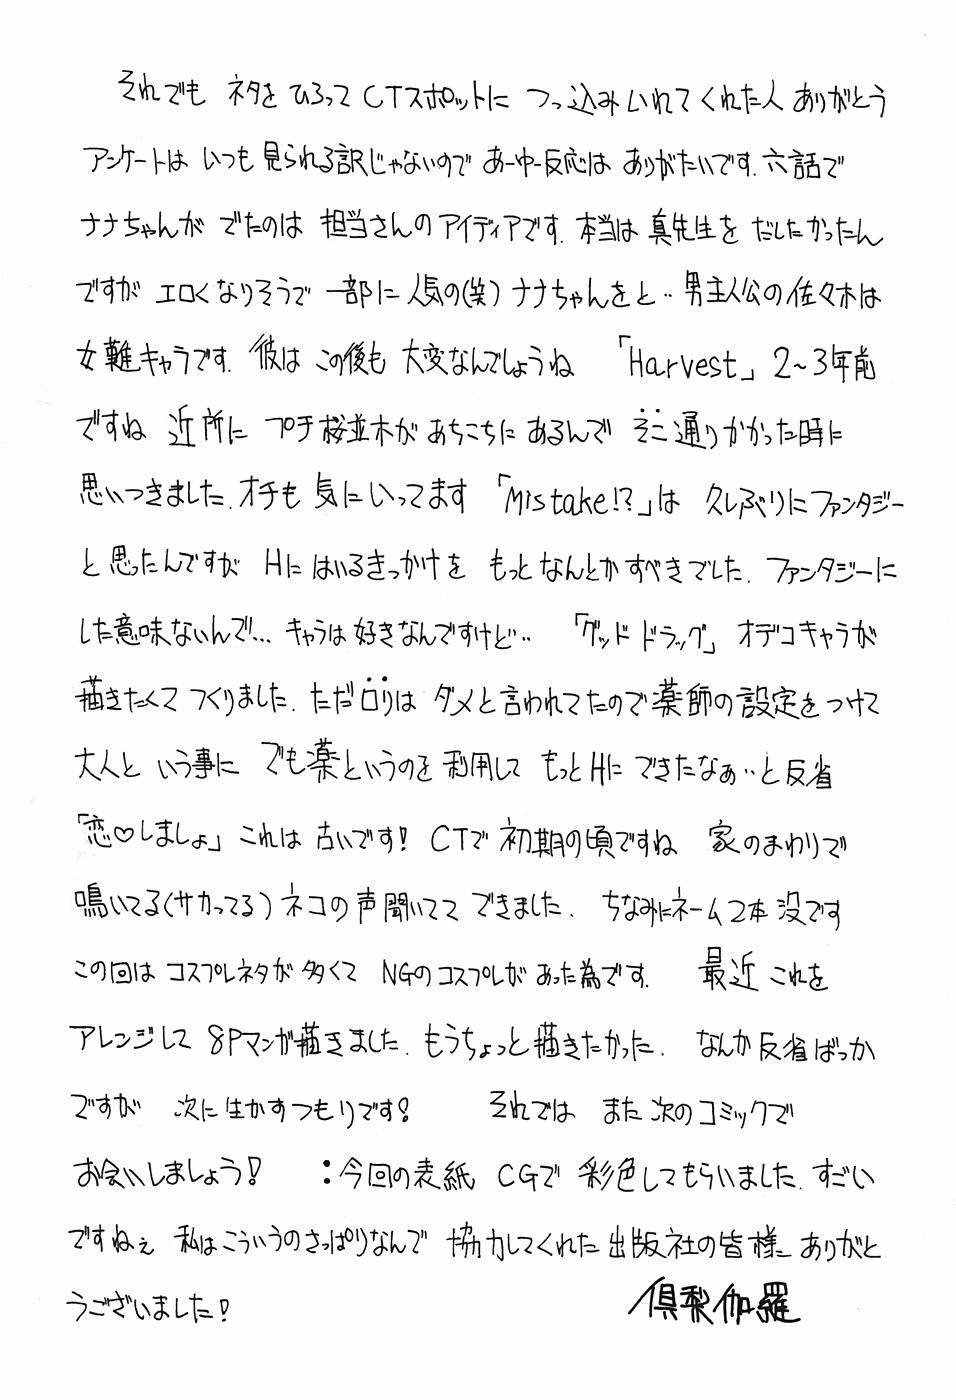 それでも ネタを ひろって CTスポットに つっ込みいれてくれた人 ありがとう
アンケートは いつも 見られる訳じゃないので あーゆー反応は ありがたいです. 六話で
ナナちゃんが でたのは 担当さんのアイディアです. 本当は 真先生を だしたかったん
ですが エロくなりそうで 一部に 人気の(笑) ナナちゃんをと‥ 男主人公の佐々木は
女難キャラです. 彼は この後も 大変なんでしょうね 「Harvest」 2～3年前
ですね 近所に プチ桜並木が あちこちに あるんで そこ通りかかった時に
思いつきました. オチも 気にいってます 「Mistake!?」は 久しぶりにファンタジー
と思ったんですが Hにはいるきっかけを もっとなんとかすべきでした. ファンタジーに
した意味ないんで… キャラは好きなんですけど‥ 「グッド ドラッグ」 オデコキャラが
描きたくて つくりました. ただロリは ダメと言われてたので薬師の設定をつけて
大人と いう事に でも薬というのを 利用して もっとHに できたなぁ‥と反省
「恋♡しましょ」 これは 古いです! CTで 初期の頃ですね 家のまわりで
鳴いてる(サカってる) ネコの声聞いてて できました. ちなみにネーム2本 没です
この回は コスプレネタが 多くて NGのコスプレが あった為です. 最近 これを
アレンジして 8Pマンガ描きました. もうちょっと描きたかった. なんか反省ばっか
ですが 次に 生かすつもりです! それでは また 次のコミックで
お会いしましょう! :今回の表紙 CGで 彩色してもらいました. すごい
ですねぇ 私はこういうのさっぱりなんで 協力してくれた 出版社の皆様 ありがと
うございました! 倶梨伽羅